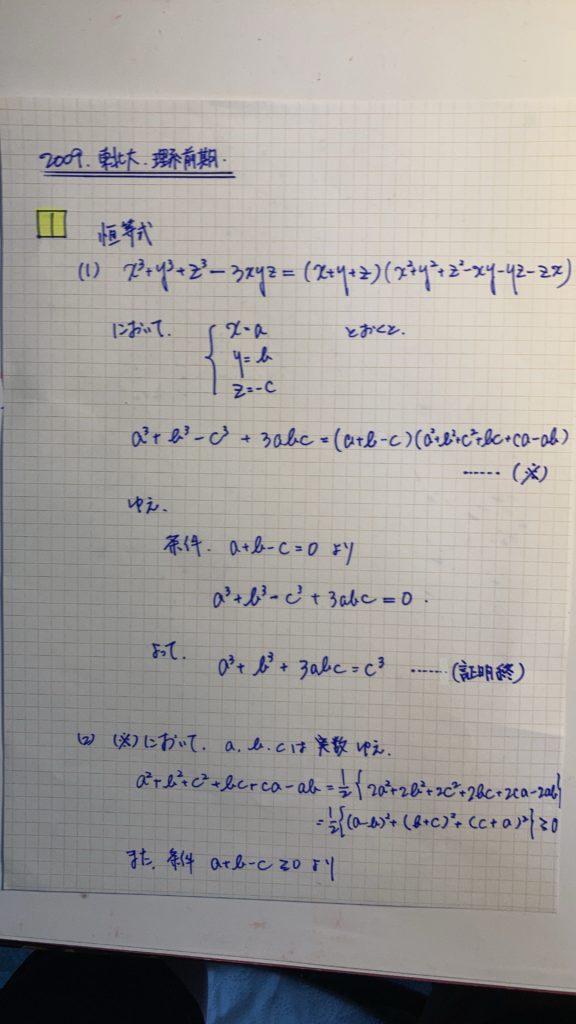 2009. 東北大. 理系前期.
1 恒等式
(1) x³+y³+z³-3xyz=(x+y+z)(x²+y²+z²-xy-yz-zx)
において. { x=a とおくと.
y=b
z=-c
a³+b³-c³+3abc=(a+b-c)(a²+b²+c²+bc+ca-ab)
……(※)
ゆえ.
条件. a+b-c=0 より
a³+b³-c³+3abc=0.
よって. a³+b³+3abc=c³ ……(証明終)
(2) (※)において. a.b.cは実数ゆえ.
a²+b²+c²+bc+ca-ab=½{2a²+2b²+2c²+2bc+2ca-2ab}
=½{(a-b)²+(b+c)²+(c+a)²}≧0
また. 条件 a+b-c≧0 より